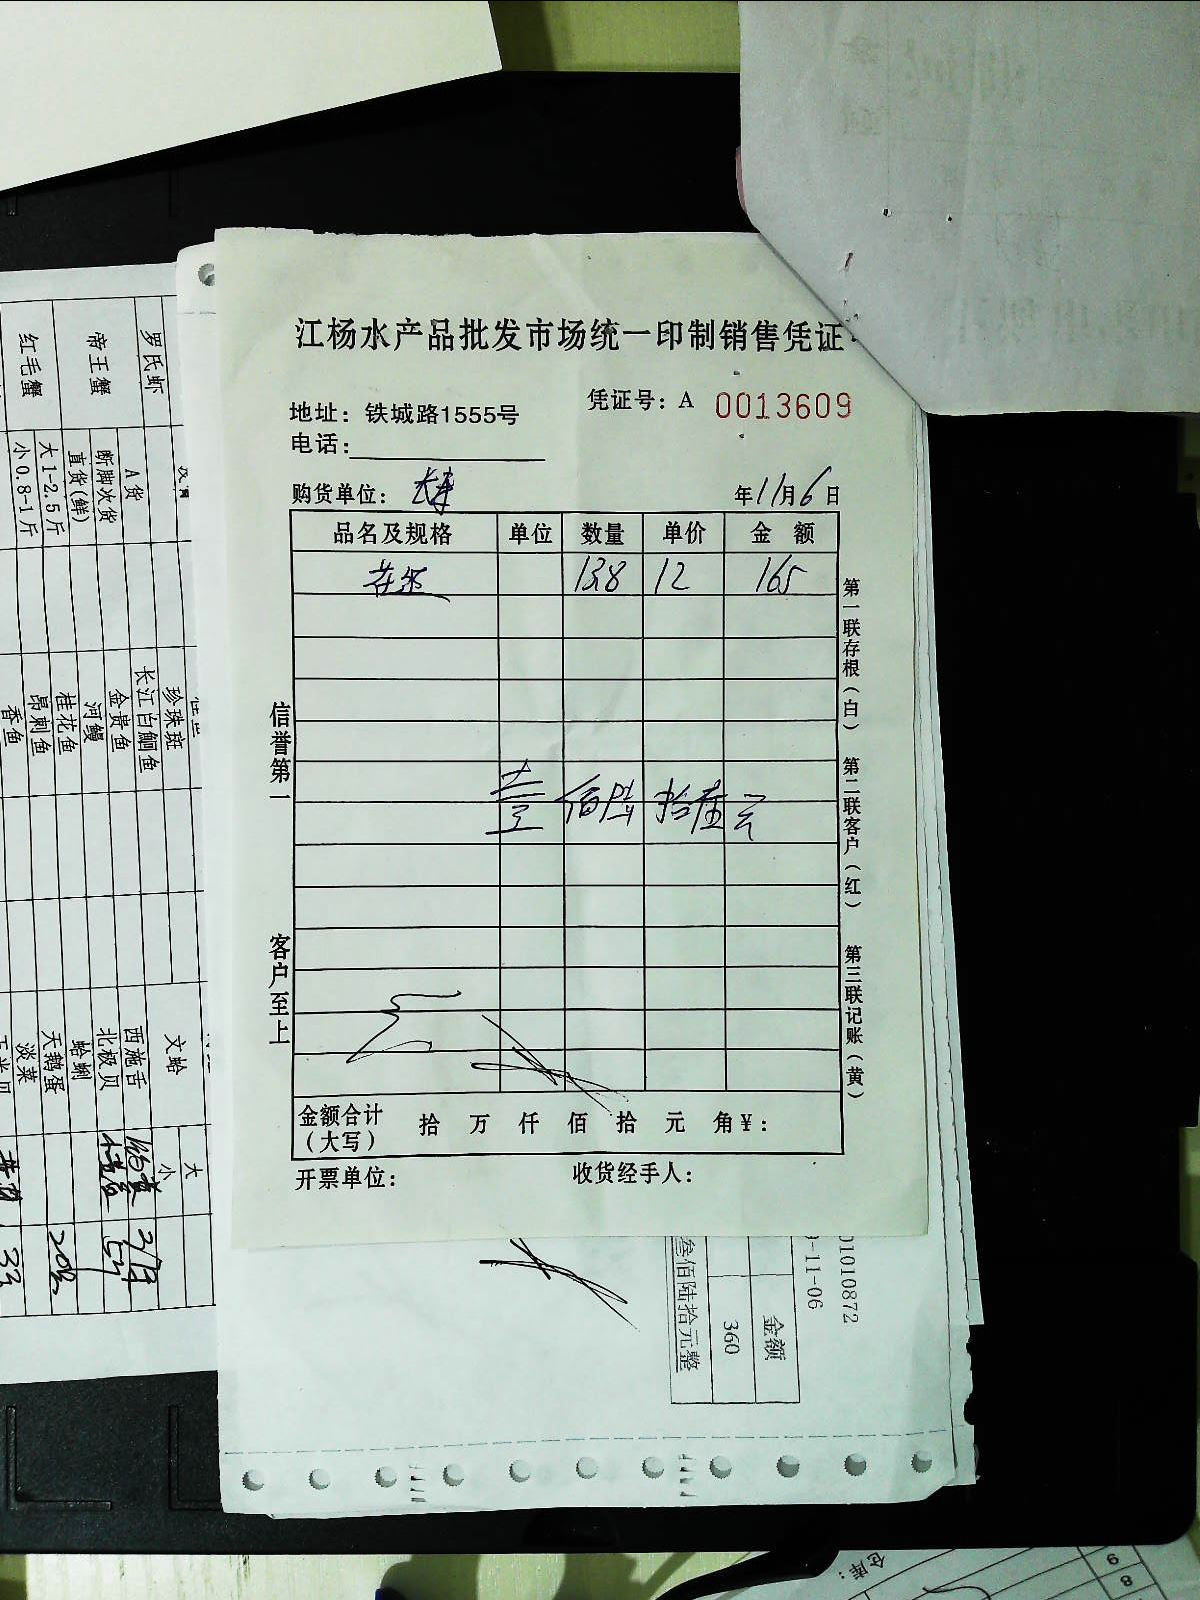 江杨水产品批发市场统一印制销售凭证
凭证号：A 0013609
地址：铁城路1555号
电话：
购货单位：
年11月6日
品名及规格 单位 数量 单价 金 额
138 12 165
壹佰陆拾伍元
金额合计（大写） 拾 万 仟 佰 拾 元 角￥：
开票单位： 收货经手人：
信誉第一
客户至上
第一联存根（白）
第二联客户（红）
第三联记账（黄）
罗氏虾
帝王蟹
红毛蟹
A货
断脚次货
直货(鲜)
大1-2.5斤
小0.8-1斤
珍珠斑
长江白鮰鱼
金贵鱼
河鳗
桂花鱼
昂刺鱼
香鱼
文蛤
西施舌
北极贝
蛤蜊
天鹅蛋
淡菜
大
小
01010872
9-11-06
金额
360
叁佰陆拾元整
仓库：
8
9